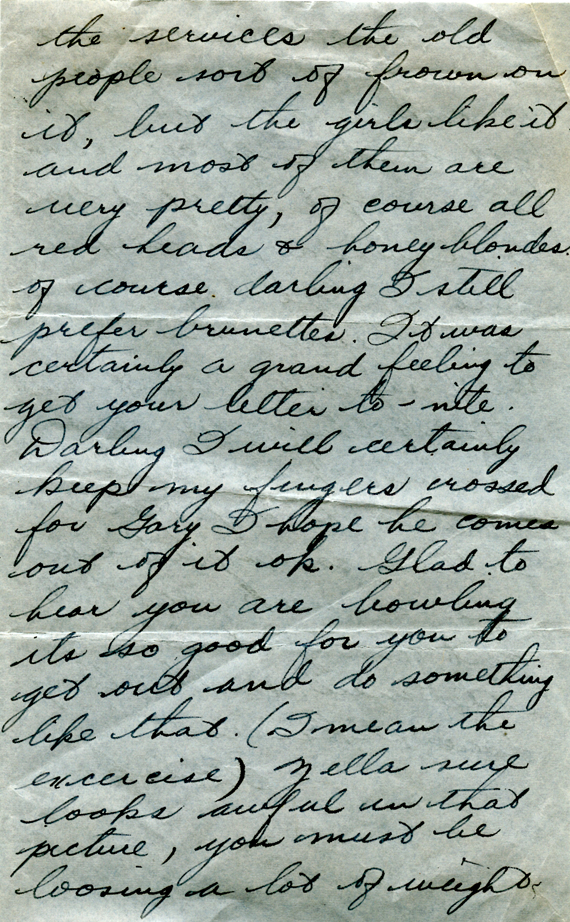 the services the old
people sort of frown on
it, but the girls like it
and most of them are
very pretty, of course all
red heads & honey blondes.
of course darling I still
prefer brunettes. It was
certainly a grand feeling to
get your letter to-nite.
Darling I will certainly
keep my fingers crossed
for Gary I hope he comes
out of it ok. Glad to
hear you are bowling
its so good for you to
get out and do something
like that. (I mean the
excercise) Zella sure
looks awful in that
picture, you must be
loosing a lot of weight